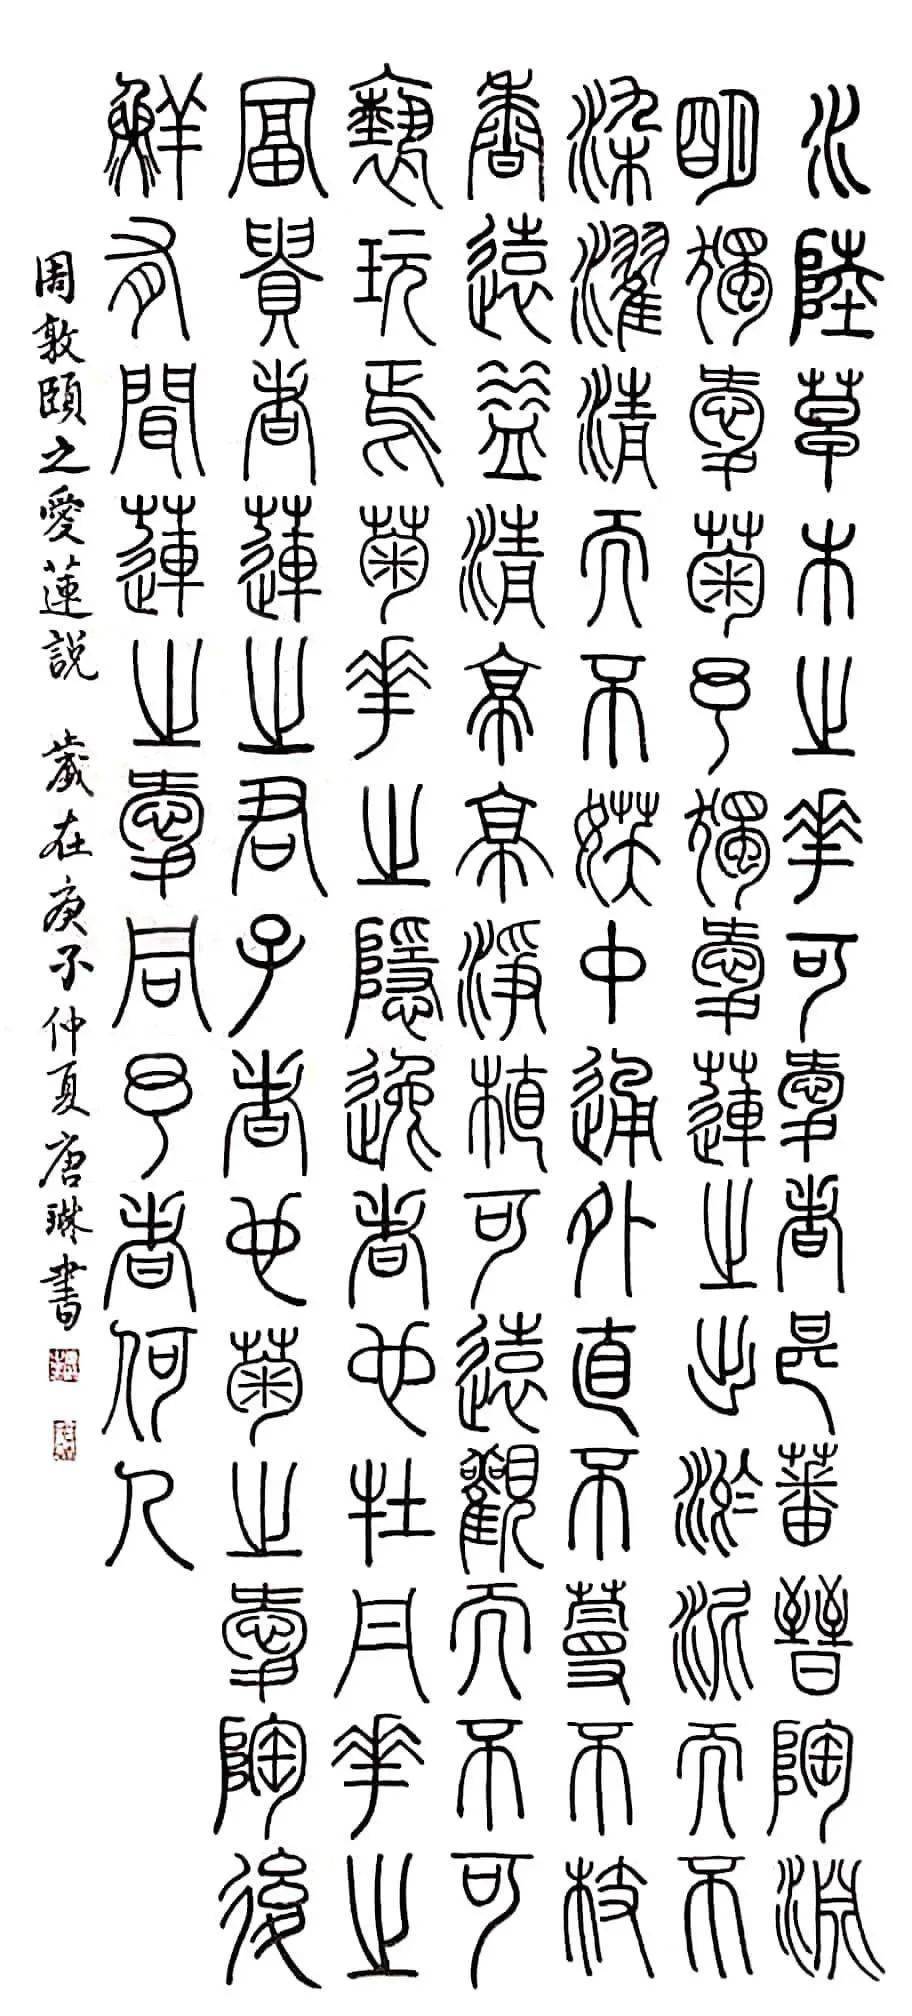 水陸草木之華可愛者甚蕃晉陶淵
明獨愛菊予獨愛蓮之出淤泥而不
染濯清而不妖中通外直不蔓不枝
香遠益清亭亭淨植可遠觀而不可
褻玩焉菊華之隱逸者也牡丹華之
富貴者蓮之君子者也菊之愛陶後
鮮有聞蓮之愛同予者何人
周敦頤之愛蓮説 歲在庚子仲夏唐琳書